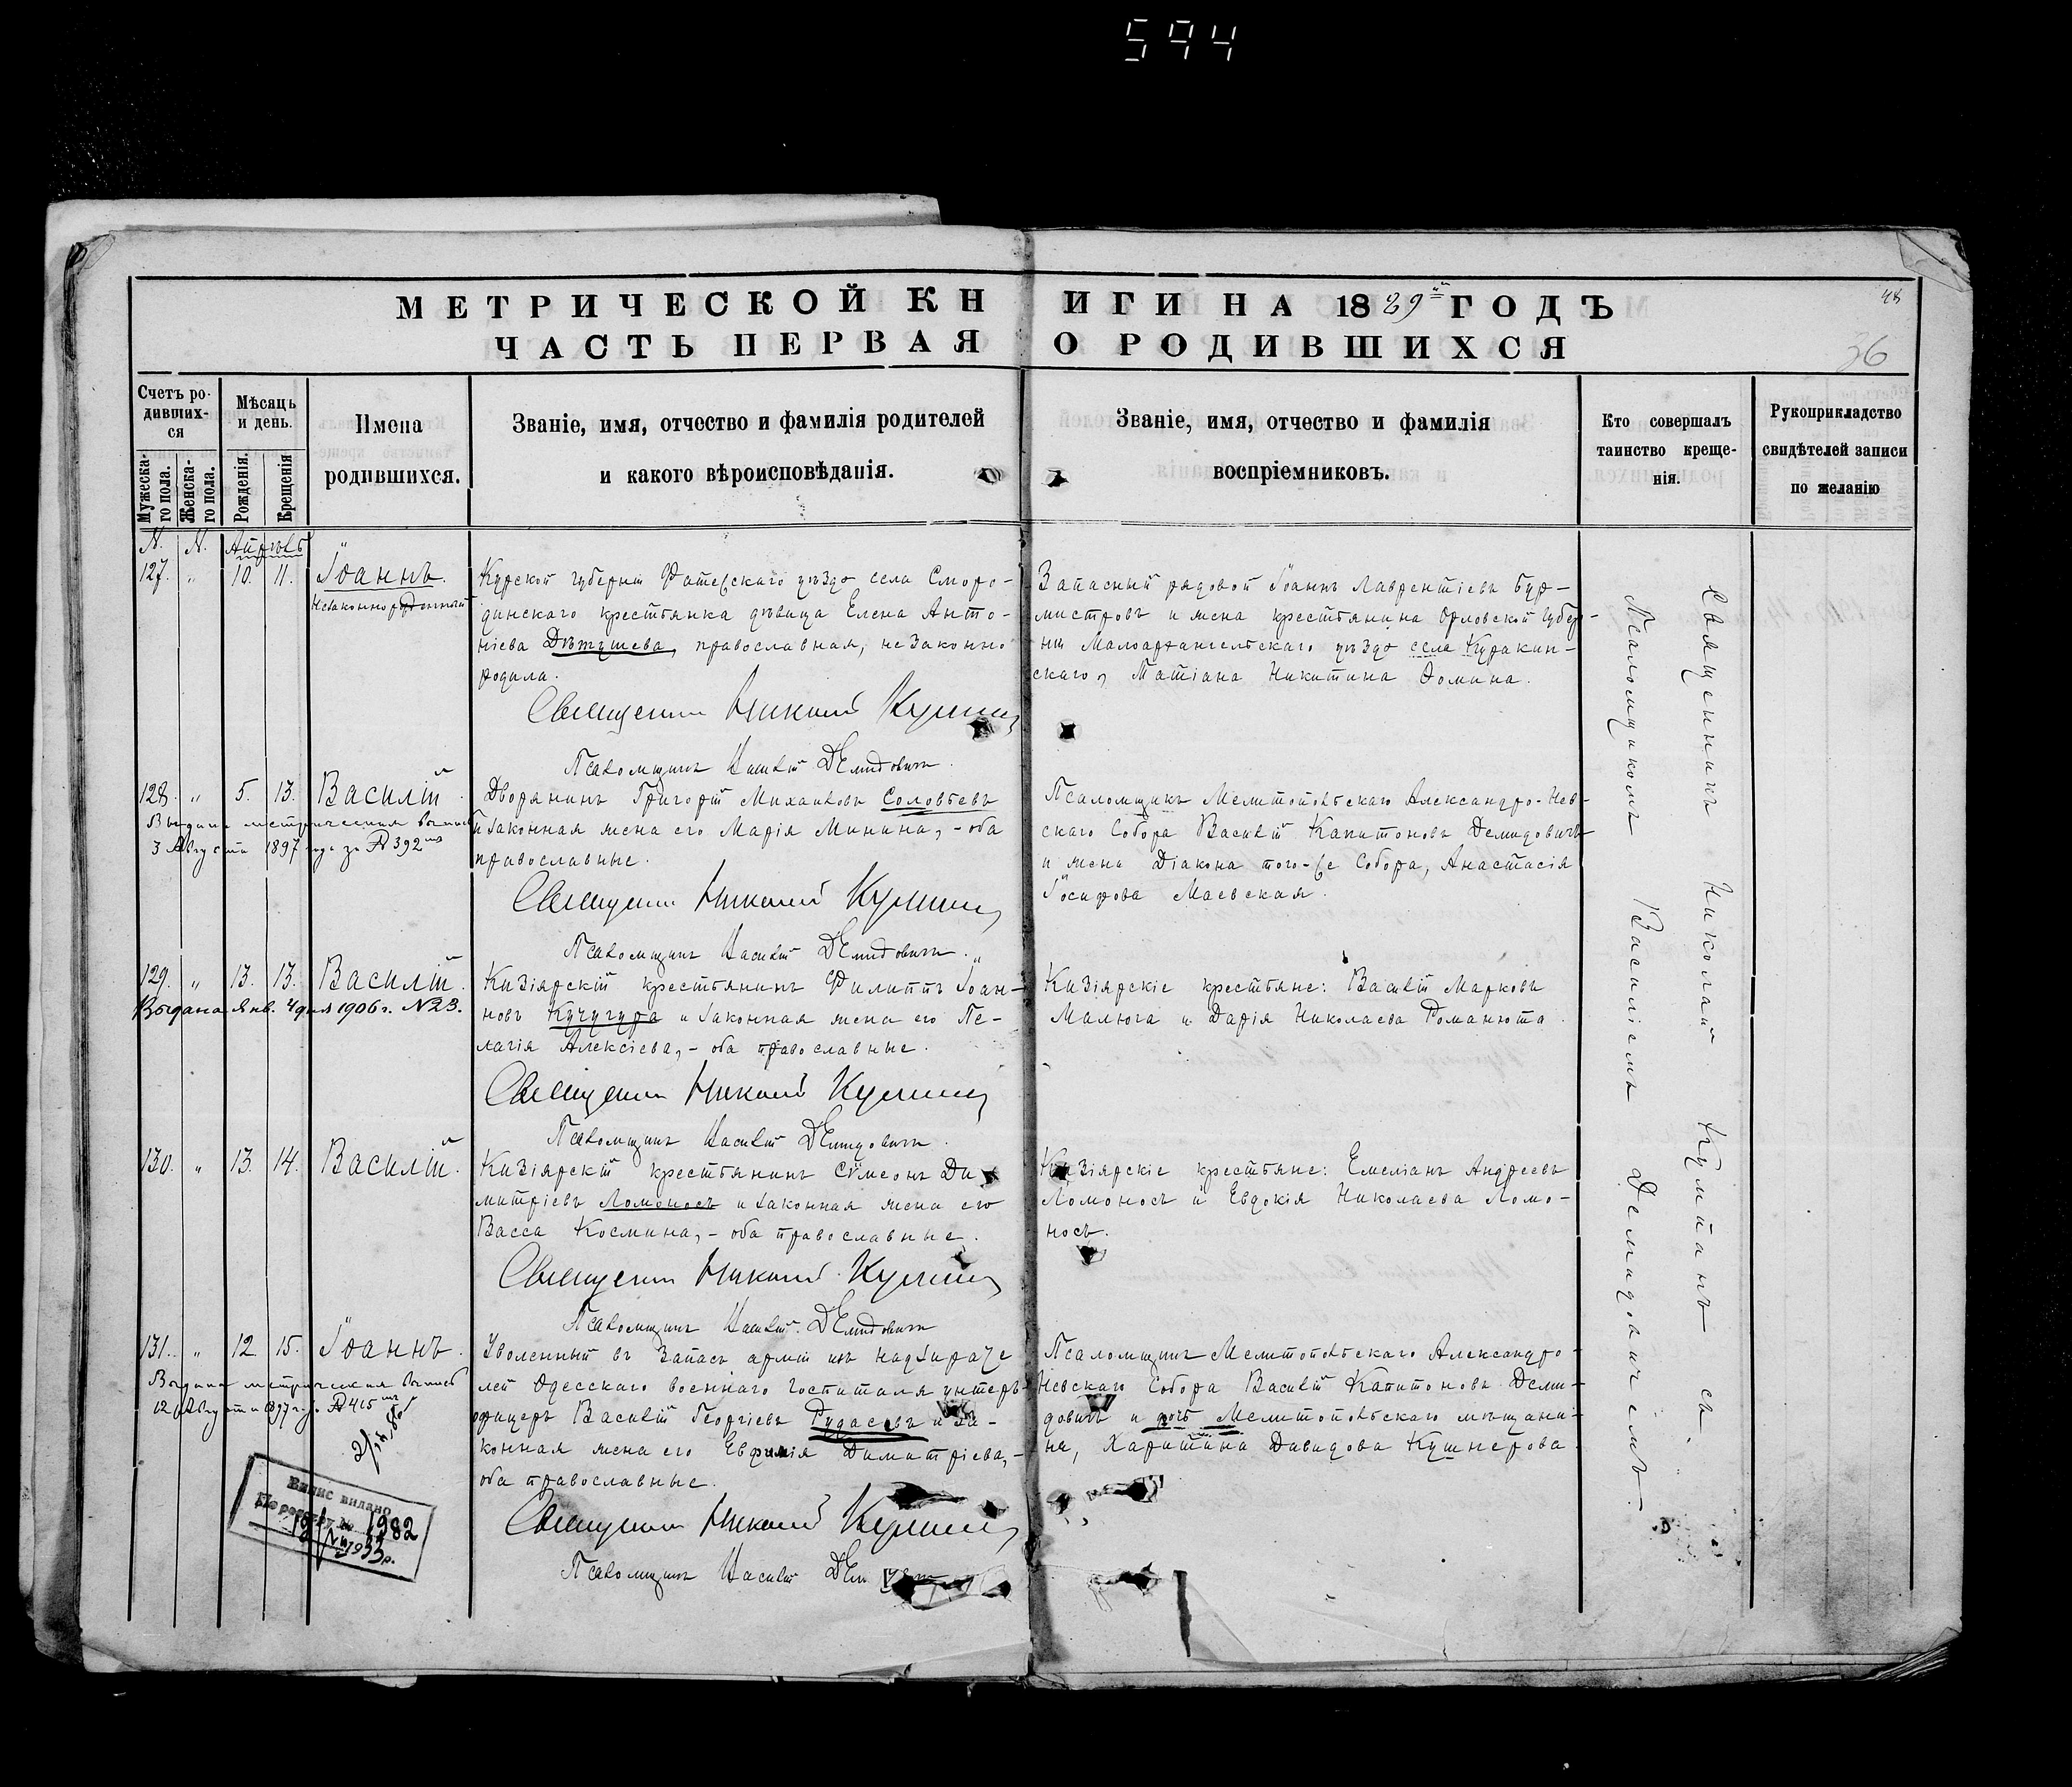 594
МЕТРИЧЕСКОЙ КНИГИ НА 1889й ГОДЪ
48
ЧАСТЬ ПЕРВАЯ О РОДИВШИХСЯ
36
Счетъ родивших-
ся
Мужеска-
го пола.
Женска-
го пола.
Мѣсяцъ
и день.
Рожденія.
Крещенія
Имена
родившихся.
Званіе, имя, отчество и фамилія родителей
и какого вѣроисповѣданія.
Званіе, имя, отчество и фамилія
воспріемниковъ.
Кто совершалъ
таинство креще-
нія.
Рукоприкладство
свидѣтелей записи
по желанію
N. N. Апрѣль
127. " 10. 11. Іоаннъ.
Незаконнорожденный
Курской губерніи Фатежскаго уѣзда села Сморо-
динскаго крестьянка дѣвица Елена Анто-
ніева Дѣтушева, православная, незаконно
родила.
Священникъ Николай
Псаломщикъ Василій Демидовичъ.
Запасный рядовой Іоаннъ Лаврентіевъ Бур-
мистровъ и жена крестьянина Орловской Губер-
ніи Малоархангельскаго уѣзда села Куракин-
скаго, Татіана Никитина Фомина.
128. " 5. 13. Василій.
Выдана метрическая выпись
3 Августа 1897 года за № 392
Дворянинъ Григорій Михаиловъ Соловьевъ
и законная жена его Марія Минина, - оба
православные.
Священникъ Николай
Псаломщикъ Василій Демидовичъ.
Псаломщикъ Мелитопольскаго Александро-Нев-
скаго Собора Василій Капитоновъ Демидовичъ
и жена Діакона того-же Собора, Анастасія
Іосифова Маевская.
129. " 13. 13. Василій.
Выдана Янв. 4 дня 1906 г. N 23.
Кизіярскій крестьянинъ Филиппъ Іоан-
новъ Кучугура и законная жена его Пе-
лагія Алексіева, - оба православные.
Священникъ Николай
Псаломщикъ Василій Демидовичъ.
Кизіярскіе крестьяне: Василій Марковъ
Малюга и Дарія Николаева Романюта
130. " 13. 14. Василій.
Кизіярскій крестьянинъ Сѵмеонъ Ди-
митріевъ Ломоносъ и законная жена его
Васса Космина, - оба православные.
Священникъ Николай
Псаломщикъ Василій Демидовичъ
Кизіярскіе крестьяне: Емеліанъ Андреевъ
Ломоносъ и Евдокія Николаева Ломо-
носъ.
131. " 12. 15. Іоаннъ.
Выдана метрическая выпись
12 Августа 1897 года № 415
Випис видано
По реєстру № 1982
1933 р.
Уволенный въ Запасъ арміи изъ надзирате
лей Одесскаго военнаго госпиталя унтеръ-
офицеръ Василій Георгіевъ Рудасевъ и за-
конная жена его Евфимія Димитріева,-
оба православные.
Священникъ Николай
Псаломщикъ Василій
Псаломщикъ Мелитопольскаго Александро-
Невскаго Собора Василій Капитоновъ Деми-
довичъ и дочь Мелитопольскаго мѣщани-
на, Харитина Давидова Кушнерова
Священникъ Николай Куміанъ съ
Псаломщикомъ Василіемъ Демидовичемъ.